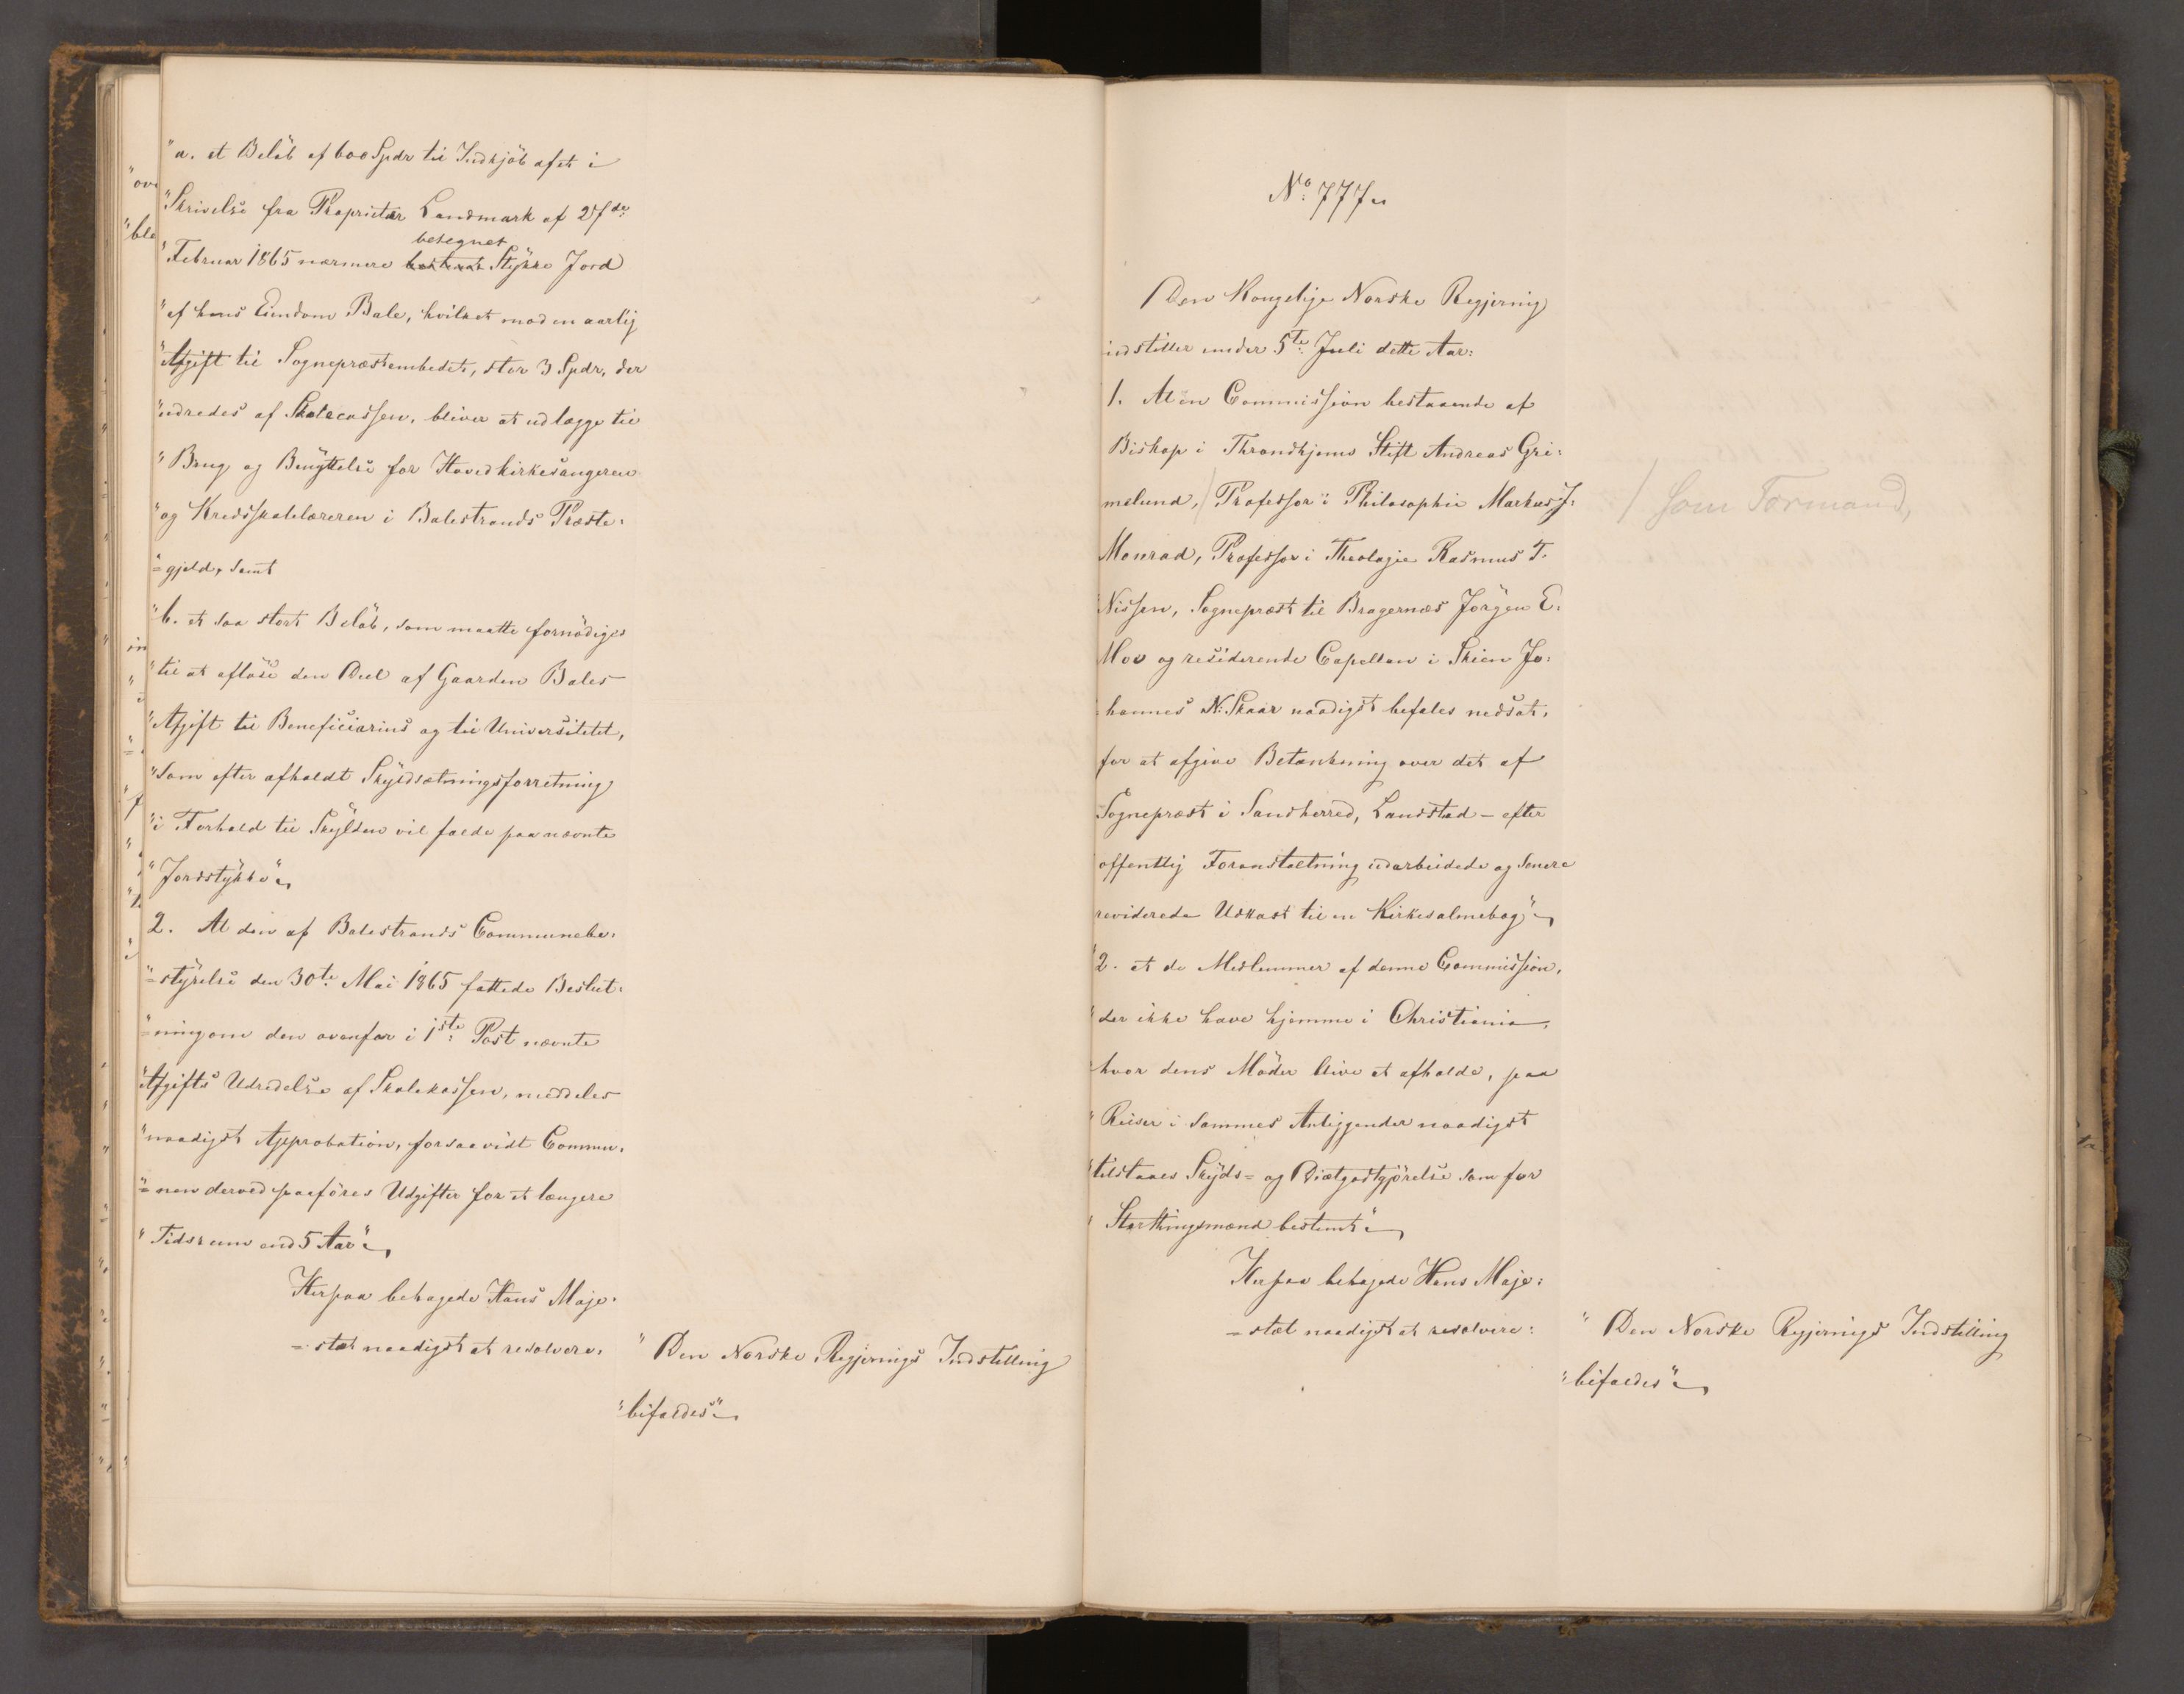 "a. et Beløb af 600 Spdr til Indkjöb af et i
"Skrivelse fra Proprietær Landmark af 27de
betegnet
"Februar 1865 nærmere bestemt Stykke Jord
"af hans Eiendom Bale, hvilket mod en aarlig
"Afgift til Sognepræstembedet, stor 3 Spdr, der
"udredes af Skolecassen, bliver at udlægge til
"Brug og Benyttelse for Hovedkirkesangeren
"og Kredsskolelæreren i Balestrands Præste:
"=gjeld, samt
"b. et saa stort Beløb, som maatte fornödiges
"til at aflöse den Deel af Gaarden Bales
"Afgift til Beneficiarius og til Universitetet,
"som efter afholdt Skyldsætningsforretning
"i Forhold til Skylden vil falde paa nævnte
"Jordstykke"
2. At den af Balestrands Communebe:
"=styrelse den 30te Mai 1865 fattede Beslut:
"=ning om den ovenfor i 1ste Post nævnte
"Afgifts Udredelse af Skolekassen, meddeles
"naadigst Approbation, forsaavidt Commu:
"=nen derved paaföres Udgifter for et længere
"Tidsrum end 5 Aar"
Herpaa behagede Hans Maje:
=stæt naadigst at resolvere:
"Den Norske Regjerings Indstilling
"bifaldes"
No 777
Den Kongelige Norske Regjering
indstiller under 5te Juli dette Aar:
1. At en Commission bestaaende af
Biskop i Throndhjems Stift Andreas Gri:
melund, / Professor i Philosophie Markus J:
/ som Formand,
Monrad, Professor i Theologie Rasmus T.
Nissen, Sognepræst til Bragernæs Jörgen E.
Moe og residerende Capellan i Skien Jo:
hannes N: Skaar naadigst befales nedsat,
for at afgive Betænkning over det af
Sognepræst i Sandherred, Landstad – efter
offentlig Foranstaltning udarbeidede og senere
reviderede Udkast til en Kirkesalmebog"
"2. at de Medlemmer af denne Commission,
"der ikke have hjemme i Christiania,
hvor dens Möder blive at afholde, paa
"Reiser i sammes Anliggender naadigst
"tilstaaes Skyds= og Diætgodtgjörelse som for
"Storthingsmænd bestemt"
Herpaa behagede Hans Maje:
=stæt naadigst at resolvere:
"Den Norske Regjerings Indstilling
"bifaldes"